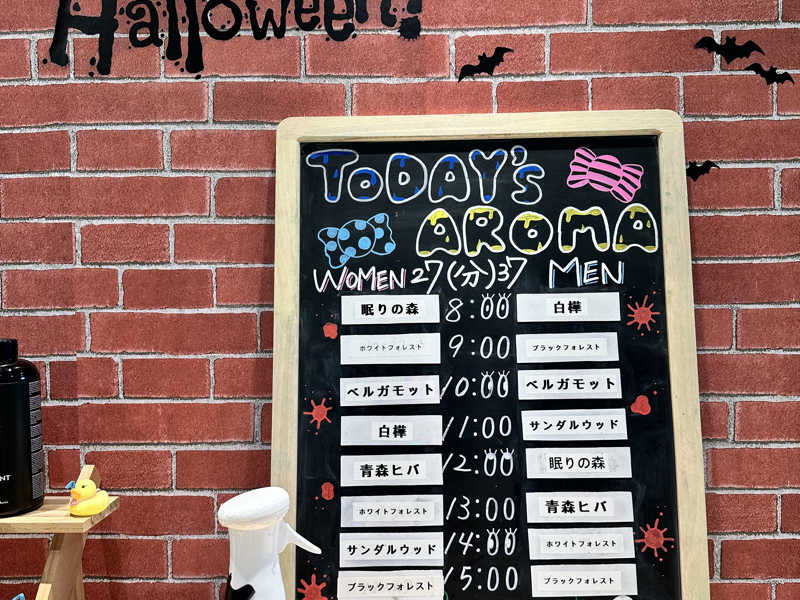 Halloween!
TODAY's
AROMA
WOMEN 27(分)37 MEN
眠りの森 8:00 白樺
ホワイトフォレスト 9:00 ブラックフォレスト
ベルガモット 10:00 ベルガモット
白樺 11:00 サンダルウッド
青森ヒバ 12:00 眠りの森
ホワイトフォレスト 13:00 青森ヒバ
サンダルウッド 14:00 ホワイトフォレスト
ブラックフォレスト 15:00 ブラックフォレスト